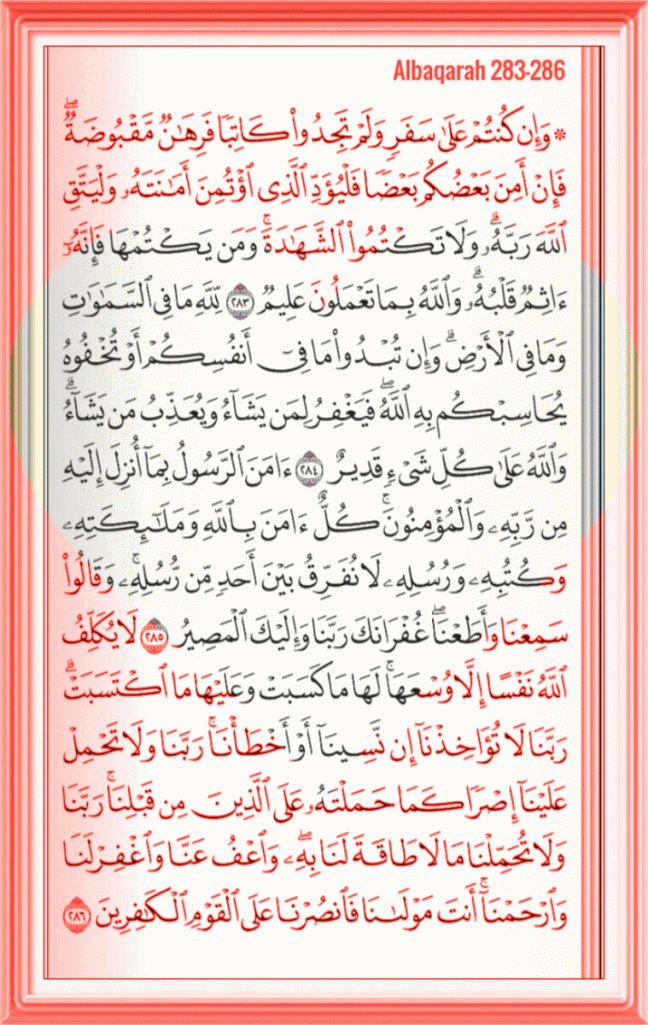 Albaqarah 283-286
۞ وَإِن كُنتُمْ عَلَىٰ سَفَرٍ وَلَمْ تَجِدُوا۟ كَاتِبًا فَرِهَـٰنٌ مَّقْبُوضَةٌ ۖ
فَإِنْ أَمِنَ بَعْضُكُم بَعْضًا فَلْيُؤَدِّ ٱلَّذِى ٱؤْتُمِنَ أَمَـٰنَتَهُۥ وَلْيَتَّقِ
ٱللَّهَ رَبَّهُۥ ۗ وَلَا تَكْتُمُوا۟ ٱلشَّهَـٰدَةَ ۚ وَمَن يَكْتُمْهَا فَإِنَّهُۥٓ
ءَاثِمٌ قَلْبُهُۥ ۗ وَٱللَّهُ بِمَا تَعْمَلُونَ عَلِيمٌ ٢٨٣ لِّلَّهِ مَا فِى ٱلسَّمَـٰوَٰتِ
وَمَا فِى ٱلْأَرْضِ ۗ وَإِن تُبْدُوا۟ مَا فِىٓ أَنفُسِكُمْ أَوْ تُخْفُوهُ
يُحَاسِبْكُم بِهِ ٱللَّهُ ۖ فَيَغْفِرُ لِمَن يَشَآءُ وَيُعَذِّبُ مَن يَشَآءُ ۗ
وَٱللَّهُ عَلَىٰ كُلِّ شَىْءٍ قَدِيرٌ ٢٨٤ ءَامَنَ ٱلرَّسُولُ بِمَآ أُنزِلَ إِلَيْهِ
مِن رَّبِّهِۦ وَٱلْمُؤْمِنُونَ ۚ كُلٌّ ءَامَنَ بِٱللَّهِ وَمَلَـٰٓئِكَتِهِۦ
وَكُتُبِهِۦ وَرُسُلِهِۦ لَا نُفَرِّقُ بَيْنَ أَحَدٍ مِّن رُّسُلِهِۦ ۚ وَقَالُوا۟
سَمِعْنَا وَأَطَعْنَا ۖ غُفْرَانَكَ رَبَّنَا وَإِلَيْكَ ٱلْمَصِيرُ ٢٨٥ لَا يُكَلِّفُ
ٱللَّهُ نَفْسًا إِلَّا وُسْعَهَا ۚ لَهَا مَا كَسَبَتْ وَعَلَيْهَا مَا ٱكْتَسَبَتْ ۗ
رَبَّنَا لَا تُؤَاخِذْنَآ إِن نَّسِينَآ أَوْ أَخْطَأْنَا ۚ رَبَّنَا وَلَا تَحْمِلْ
عَلَيْنَآ إِصْرًا كَمَا حَمَلْتَهُۥ عَلَى ٱلَّذِينَ مِن قَبْلِنَا ۚ رَبَّنَا
وَلَا تُحَمِّلْنَا مَا لَا طَاقَةَ لَنَا بِهِۦ ۖ وَٱعْفُ عَنَّا وَٱغْفِرْ لَنَا
وَٱرْحَمْنَآ ۚ أَنتَ مَوْلَىٰنَا فَٱنصُرْنَا عَلَى ٱلْقَوْمِ ٱلْكَـٰفِرِينَ ٢٨٦